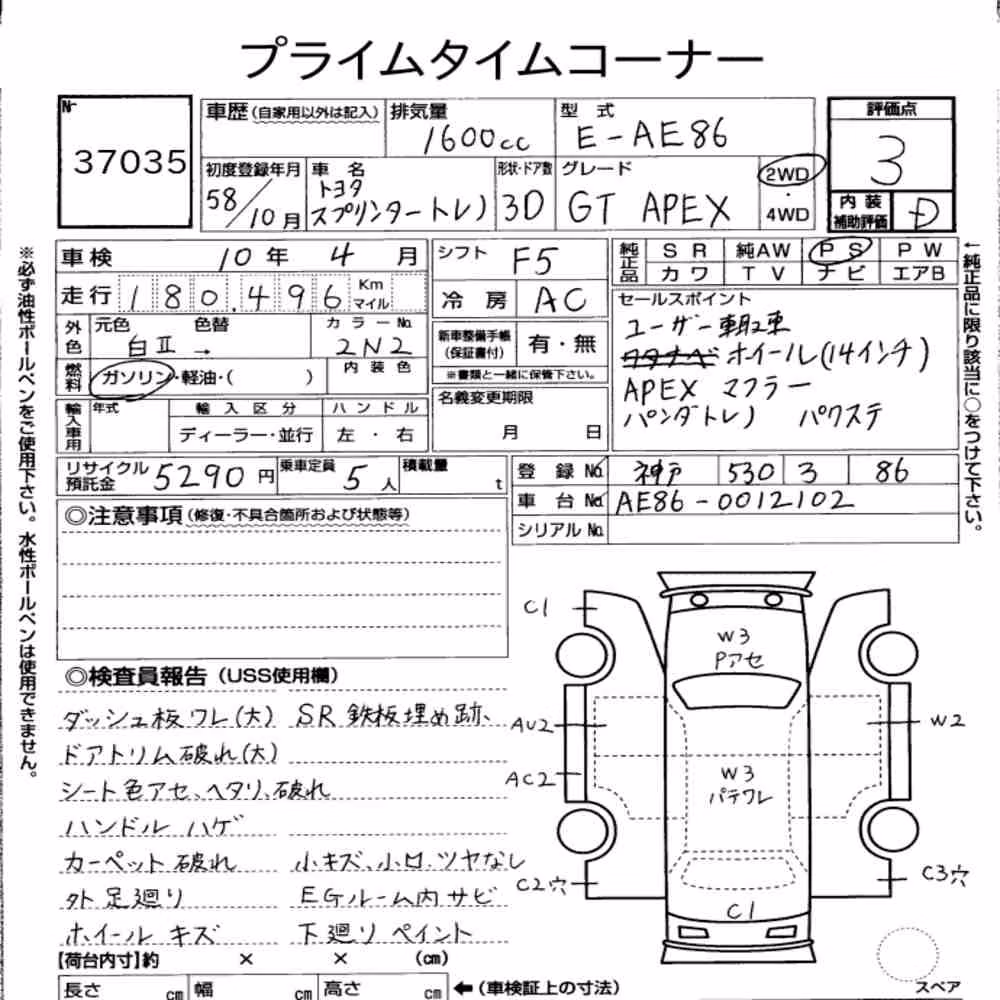 プライムタイムコーナー
No
37035
車歴(自家用以外は記入) 排気量 1600cc 型式 E-AE86 評価点 3
初度登録年月 58/10月 車名 トヨタ スプリンタートレノ 形状・ドア数 3D グレード GT APEX 2WD・4WD 内装補助評価 D
※必ず油性ボールペンをご使用下さい。水性ボールペンは使用できません。
車検 10年 4月 シフト F5 純正品 SR 純AW PS PW
カワ TV ナビ エアB
走行 180,496 Km マイル 冷房 AC
セールスポイント
ユーザー買取車
ワタナベ ホイール(14インチ)
APEX マフラー
パンダトレノ パワステ
←純正品に限り該当に○をつけて下さい。
外色 元色 白II 色替 → カラーNo. 2N2 新車整備手帳(保証書付) 有・無
燃料 ガソリン・軽油・( ) 内装色 ※書類と一緒に保管下さい。
輸入車用 年式 輸入区分 ハンドル 名義変更期限
ディーラー・並行 左・右 月 日
リサイクル預託金 5290円 乗車定員 5人 積載量 t 登録No. 神戸 530 3 86
車台No. AE86-0012102
シリアルNo.
◎注意事項(修復・不具合箇所および状態等)
◎検査員報告(USS使用欄)
ダッシュ板ワレ(大) SR 鉄板埋め跡、
ドアトリム破れ(大)
シート色アセ、ヘタリ、破れ
ハンドル ハゲ
カーペット破れ 小キズ、小凹、ツヤなし
外 足廻り EGルーム内サビ
ホイール キズ 下廻りペイント
C1
W3
Pアセ
AU2
W2
AC2
W3
パテワレ
C2穴
C3穴
C1
スペア
【荷台内寸】約 × × (cm)
長さ cm 幅 cm 高さ cm ←(車検証上の寸法)